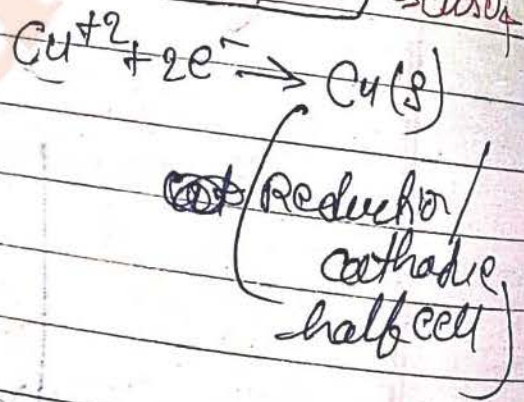 →CuSO4
Cu+2 + 2e- → Cu(s)
(Reduction/
cathodic
half cell)